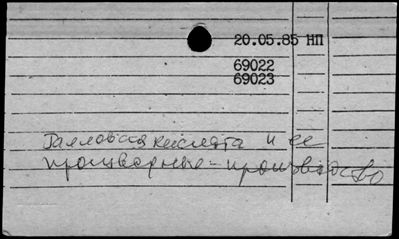 20.05.85 НП
69022
69023
Галловая кислота и ее
производные - производство